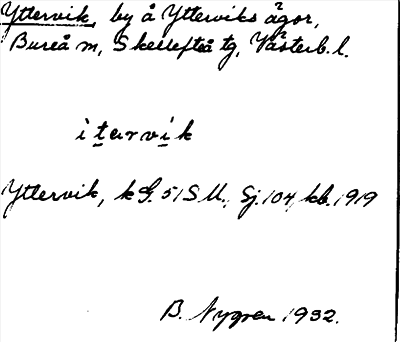 Yttervik, by å Ytterviks ägor,
Bureå m, Skellefteå tg, Västerb. l.
i tervik
Yttervik, k G. 51 S U., Sj. 104, kb. 1919
B. Nygren 1932.